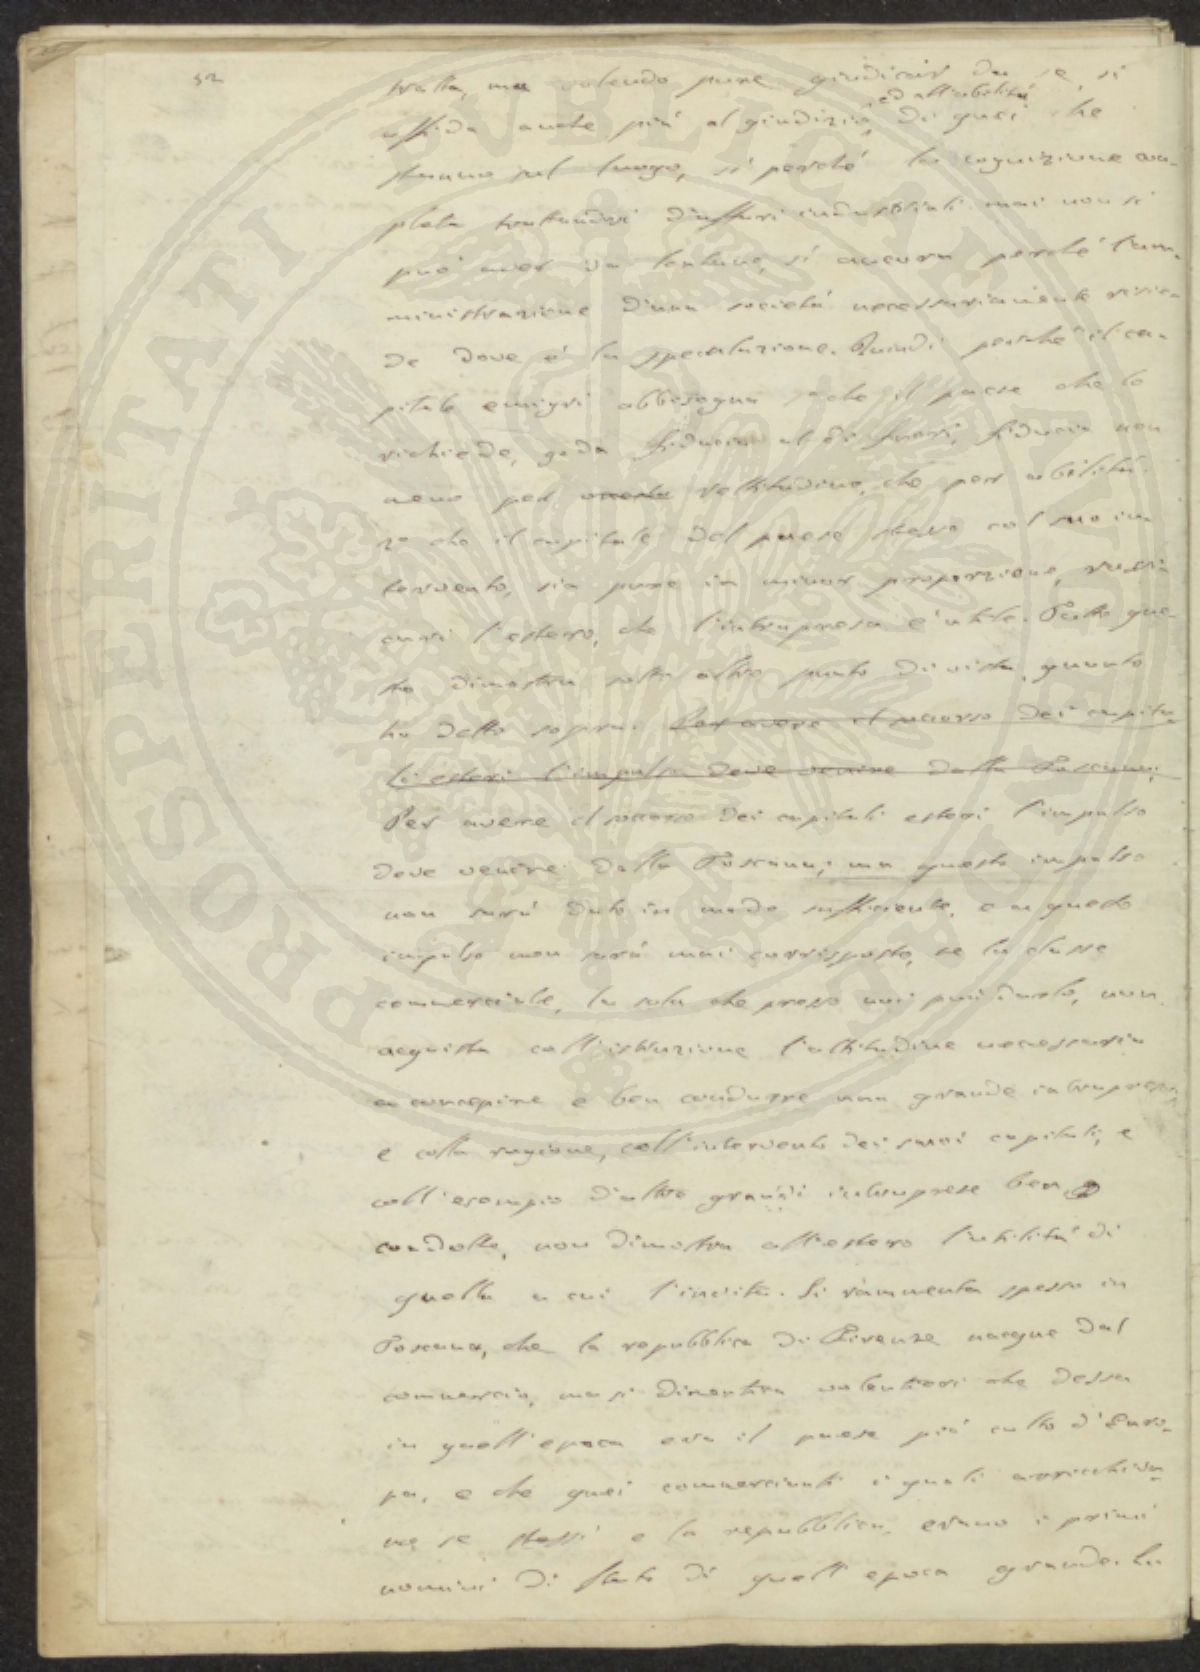 52
tratta, ma volendo pure giudicar da se, si
ed all'abilità
affida anche più al giudizio, di quei che
stanno sul luogo, sì perché la cognizione com-
pleta trattandosi d'affari industriali mai non si
può aver da lontano, sì ancora perché l'am-
ministrazione d'una società necessariamente risie-
de dove é la speculazione. Quindi perché il ca-
pitale emigri abbisogna che il paese che lo
richiede, goda fiducia al di fuori, fiducia non
meno per rettitudine, che per abilità.
2º che il capitale del paese stesso col suo in-
tervento, sia pure in minor proporzione, rassi-
curi l'estero, che l'intrapresa é utile. Tutto que-
sto dimostra sotto altro punto di vista, quanto
ho detto sopra. Per avere il soccorso dei capita-
li esteri l'impulso deve venire dalla Toscana;
Per avere il soccorso dei capitali esteri l'impulso
deve venire dalla Toscana; ma questo impulso
non sarà dato in modo sufficiente, e a questo
impulso non sarà mai corrisposto, se la classe
commerciale, la sola che presso noi può darlo, non
acquista coll'istruzione l'attitudine necessaria
a concepire e ben condurre una grande intrapresa,
e colla ragione, coll'intervento dei suoi capitali, e
coll'esempio d'altre grandi intraprese ben
condotte, non dimostra all'estero l'utilità di
quella a cui l'invita. Si rammenta spesso in
Toscana, che la repubblica di Firenze nacque dal
commercio, ma si dimentica volentieri che dessa
in quell'epoca era il paese più culto d'Euro-
pa, e che quei commercianti i quali arricchiva-
no se stessi e la repubblica, erano i primi
uomini di stato di quell'epoca grande. La
PROSPERITATI PVBLICAE AVGENDAE